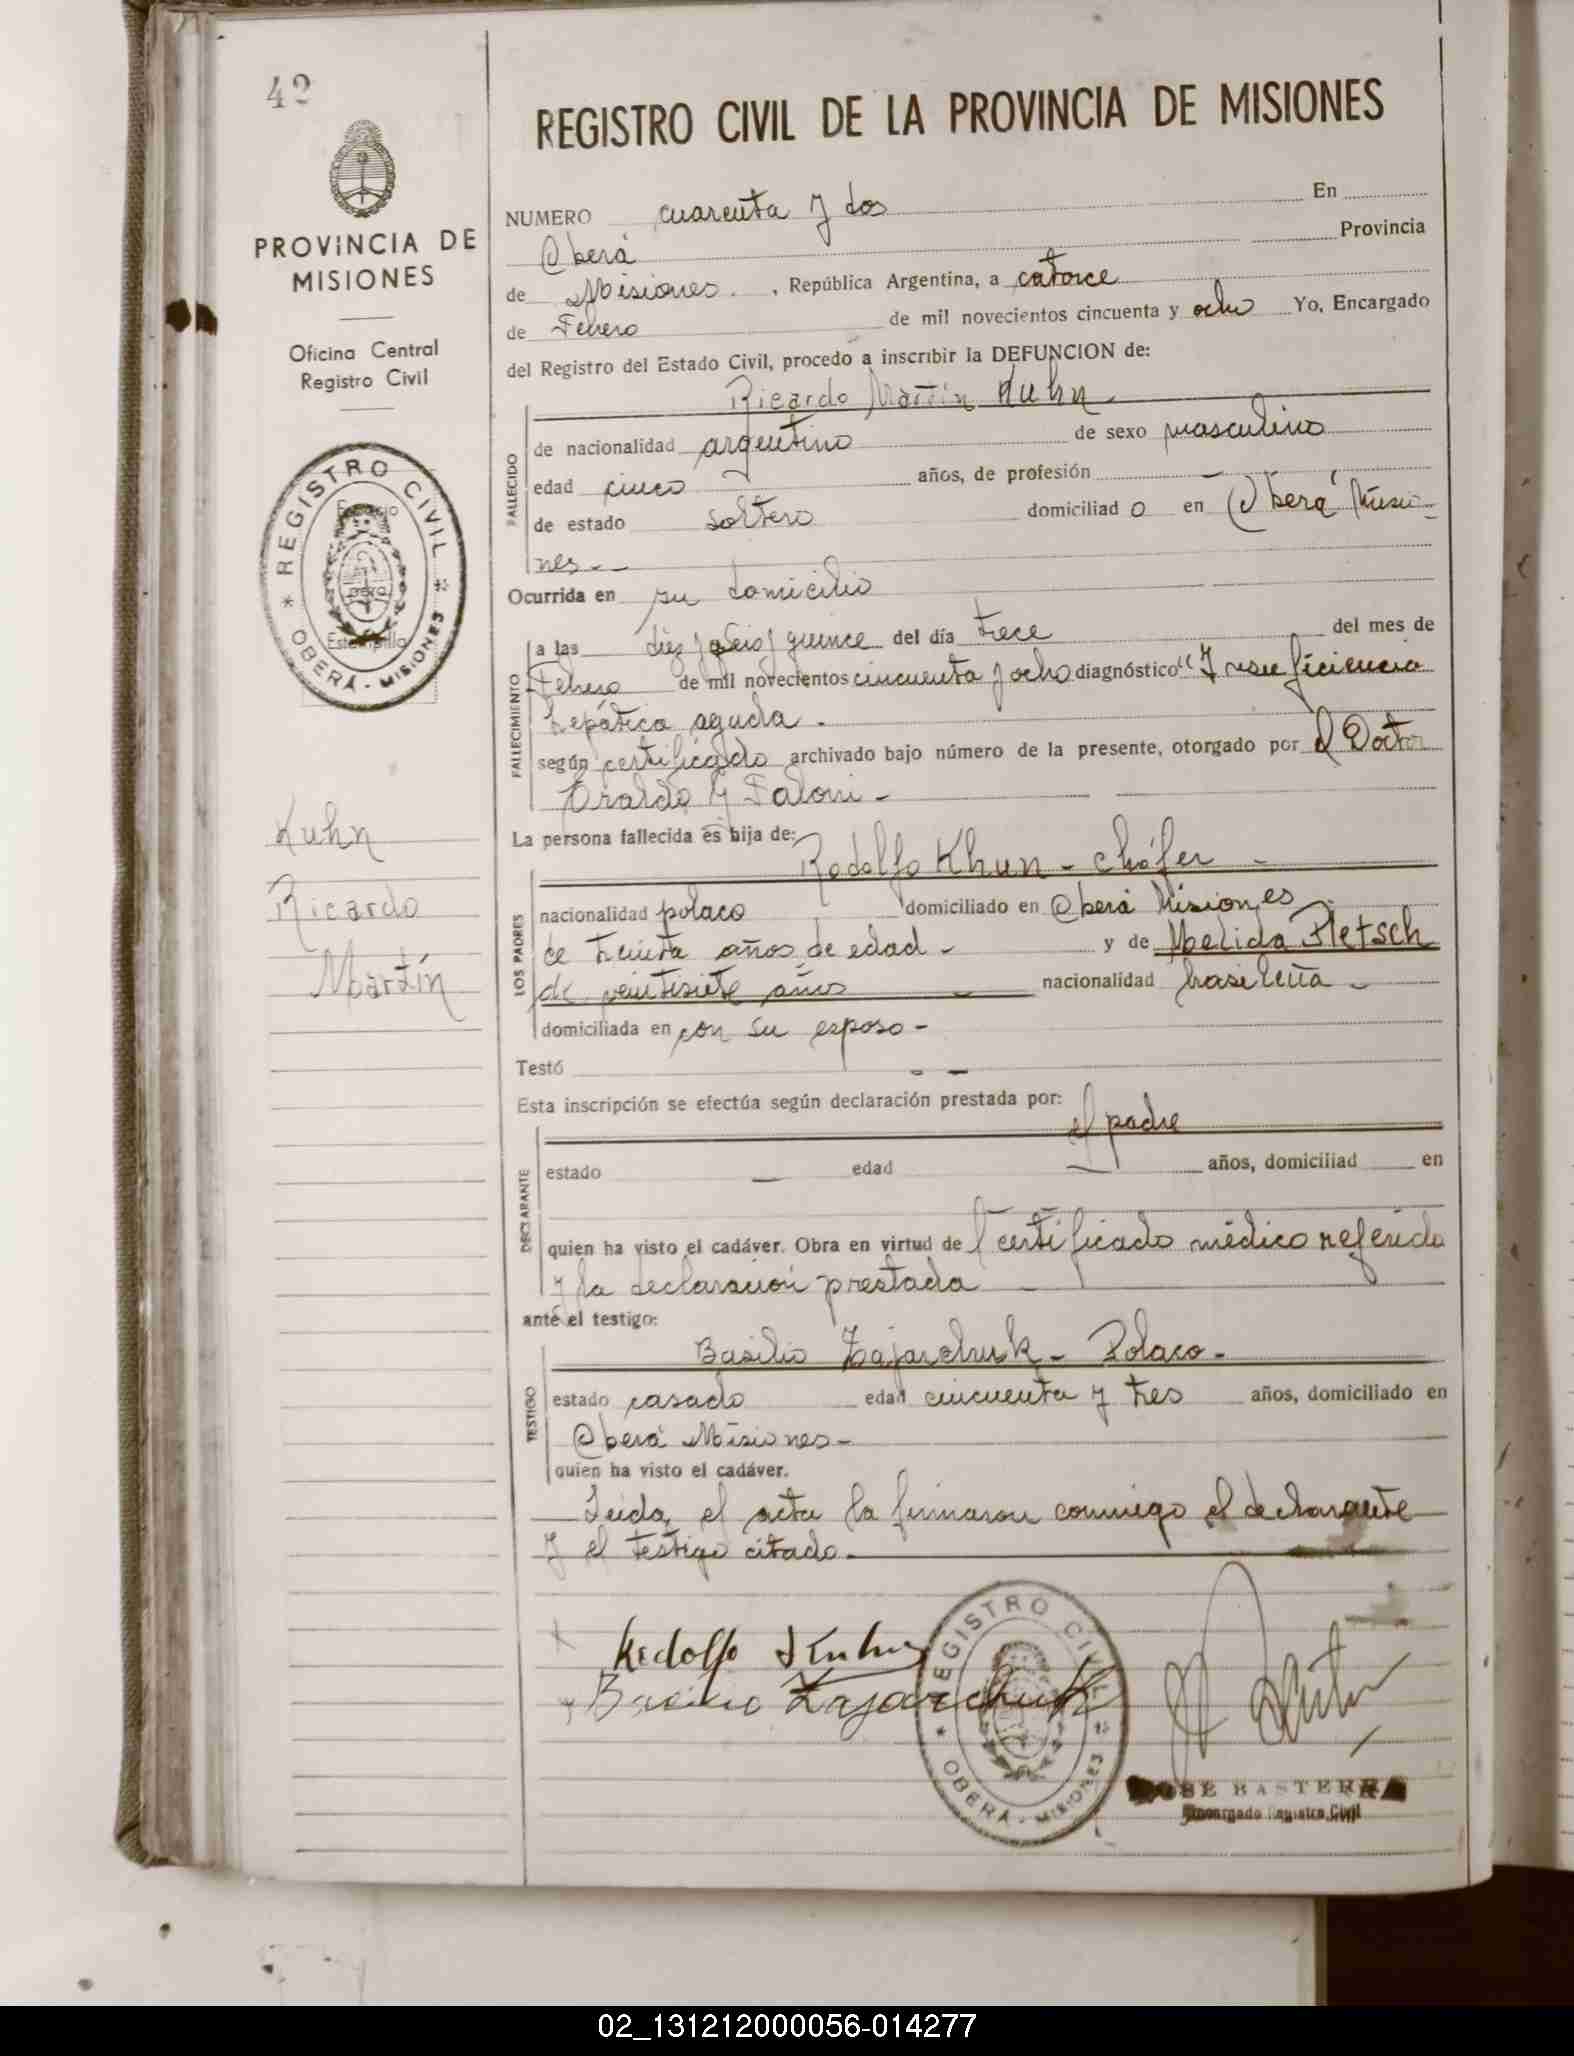 42
REGISTRO CIVIL DE LA PROVINCIA DE MISIONES
PROVINCIA DE
MISIONES
Oficina Central
Registro Civil
REGISTRO CIVIL
OBERÁ - MISIONES
Kuhn
Ricardo
Martín
NUMERO cuarenta y dos En
Oberá Provincia
de Misiones. , República Argentina, a catorce
de Febrero de mil novecientos cincuenta y ocho Yo, Encargado
del Registro del Estado Civil, procedo a inscribir la DEFUNCION de:
Ricardo Martín Kuhn.
FALLECIDO
de nacionalidad argentino de sexo masculino
edad cinco años, de profesión —
de estado soltero domiciliad o en Oberá Misio-
nes - -
Ocurrida en su domicilio
FALLECIMIENTO
a las diez y seis y quince del día trece del mes de
Febrero de mil novecientos cincuenta y ocho diagnóstico "Insuficiencia
hepática aguda .
según certificado archivado bajo número de la presente, otorgado por el Doctor
La persona fallecida es hija de:
LOS PADRES
Rodolfo Khun - chófer -
nacionalidad polaco domiciliado en Oberá Misiones
de treinta años de edad - y de Melida Pletsch
de veintisiete años - nacionalidad brasileña -
domiciliada en con su esposo -
Testó - -
Esta inscripción se efectúa según declaración prestada por:
el padre
DECLARANTE
estado — edad — años, domiciliad en
quien ha visto el cadáver. Obra en virtud de l certificado médico referido
y la declaración prestada -
ante el testigo:
Basilio Zajarchuk - Polaco -
TESTIGO
estado casado edad cincuenta y tres años, domiciliado en
Oberá Misiones -
quien ha visto el cadáver.
Leida, el acta la firmaron conmigo el declarante
y el testigo citado. -
Rodolfo Kuhn
Basilio Zajarchuk
REGISTRO CIVIL
OBERÁ - MISIONES
JOSE BASTERRA
Encargado Registro Civil
02_131212000056-014277